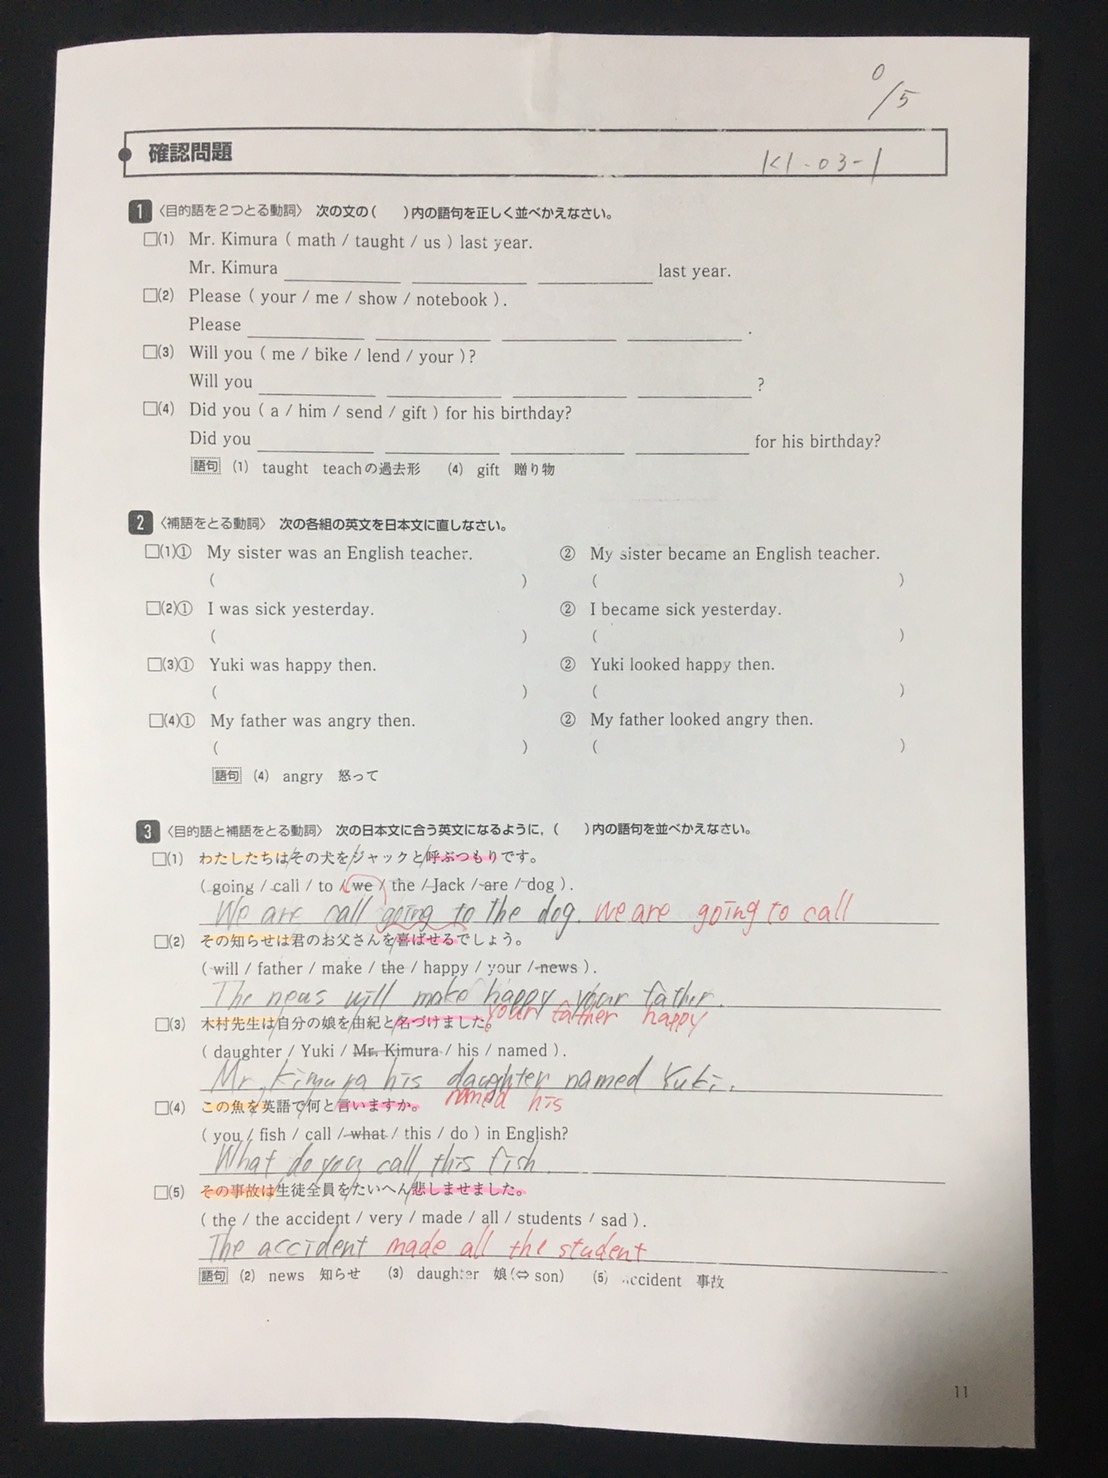 0/5
確認問題
K1-03-1
1 〈目的語を2つとる動詞〉 次の文の( )内の語句を正しく並べかえなさい。
□(1) Mr. Kimura ( math / taught / us ) last year.
Mr. Kimura ____ ____ ____ last year.
□(2) Please ( your / me / show / notebook ).
Please ____ ____ ____ ____ .
□(3) Will you ( me / bike / lend / your )?
Will you ____ ____ ____ ____ ?
□(4) Did you ( a / him / send / gift ) for his birthday?
Did you ____ ____ ____ ____ for his birthday?
語句 (1) taught teachの過去形 (4) gift 贈り物
2 〈補語をとる動詞〉 次の各組の英文を日本文に直しなさい。
□(1)① My sister was an English teacher. ② My sister became an English teacher.
( ) ( )
□(2)① I was sick yesterday. ② I became sick yesterday.
( ) ( )
□(3)① Yuki was happy then. ② Yuki looked happy then.
( ) ( )
□(4)① My father was angry then. ② My father looked angry then.
( ) ( )
語句 (4) angry 怒って
3 〈目的語と補語をとる動詞〉 次の日本文に合う英文になるように, ( )内の語句を並べかえなさい。
□(1) わたしたちは/その犬を/ジャックと/呼ぶつもりです。
( going / call / to / we / the / Jack / are / dog ).
We are call going to the dog. we are going to call
□(2) その知らせは君のお父さんを/喜ばせるでしょう。
( will / father / make / the / happy / your / news ).
The news will make happy your father.
your father happy
□(3) 木村先生は/自分の娘を/由紀と/名づけました。
( daughter / Yuki / Mr. Kimura / his / named ).
Mr. Kimura his daughter named Yuki.
named his
□(4) この魚を/英語で/何と/言いますか。
( you / fish / call / what / this / do ) in English?
What do you call this fish.
□(5) その事故は/生徒全員を/たいへん/悲しませました。
( the / the accident / very / made / all / students / sad ).
The accident made all the student
語句 (2) news 知らせ (3) daughter 娘(⇔ son) (5) accident 事故
11